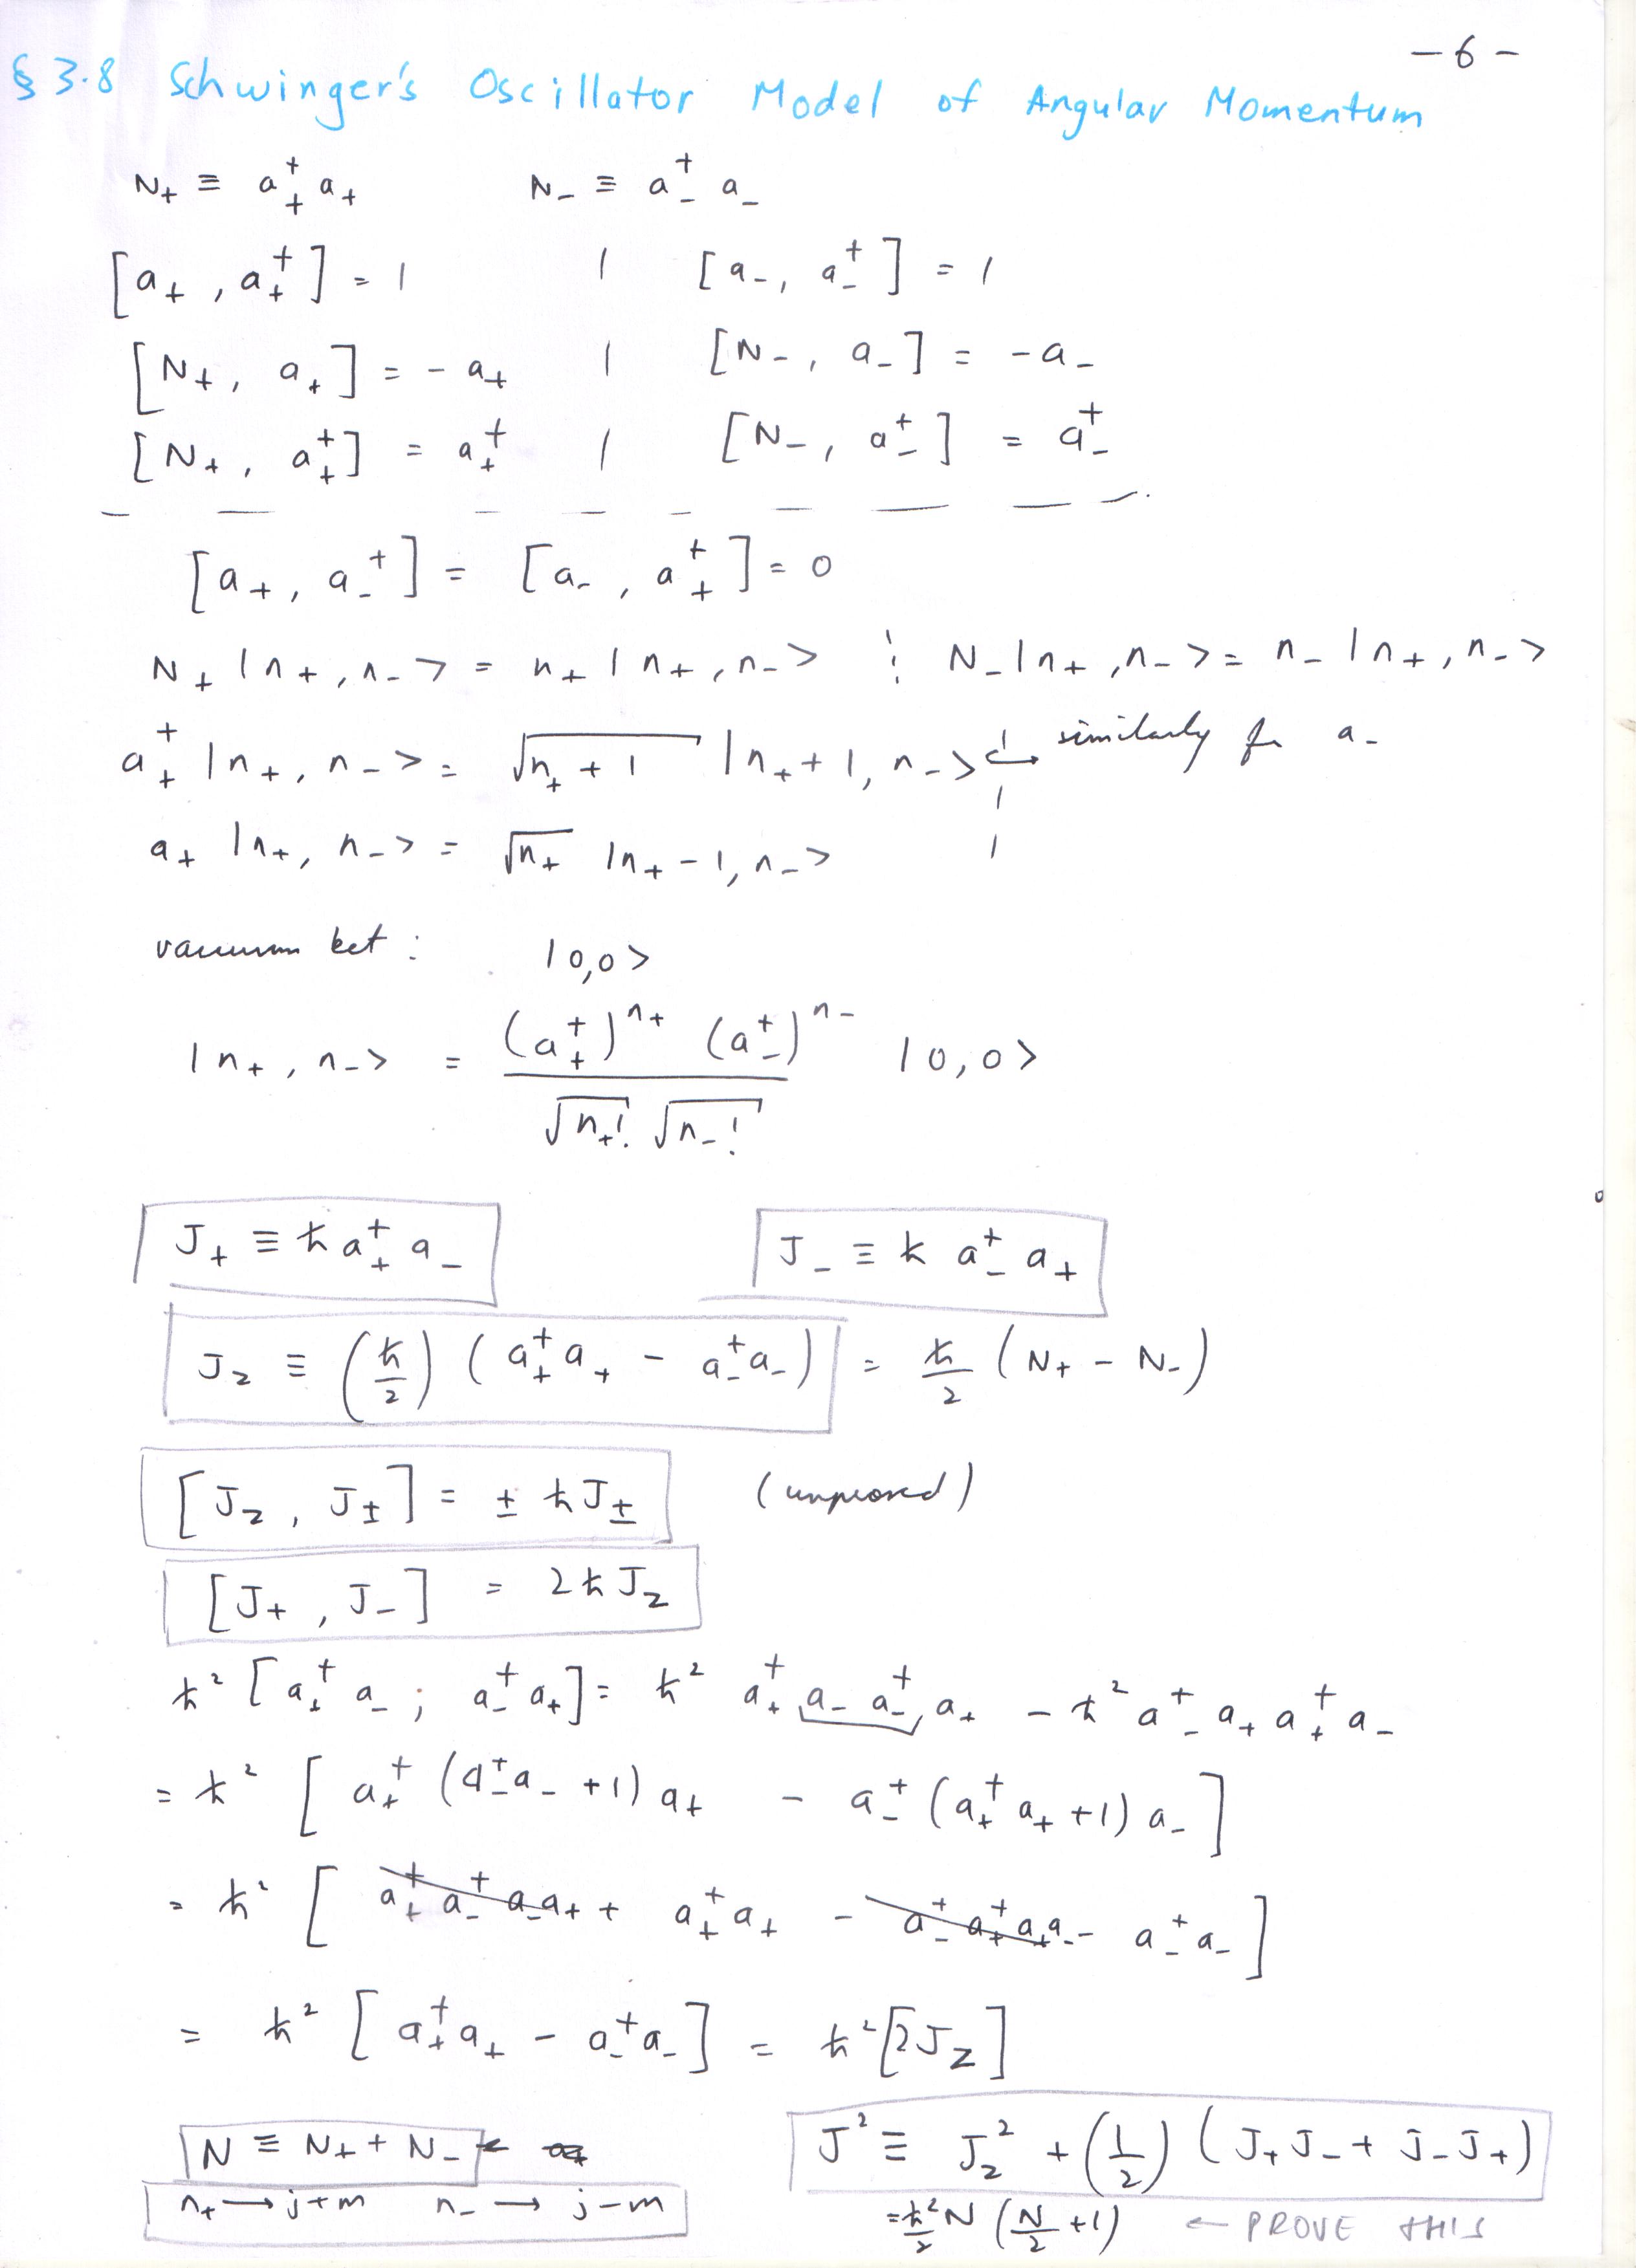 - 6 -
§ 3.8 Schwinger's Oscillator Model of Angular Momentum
N₊ ≡ a₊† a₊   N₋ ≡ a₋† a₋
[a₊, a₊†] = 1 | [a₋, a₋†] = 1
[N₊, a₊] = - a₊ | [N₋, a₋] = - a₋
[N₊, a₊†] = a₊† | [N₋, a₋†] = a₋†
[a₊, a₋†] = [a₋, a₊†] = 0
N₊ |n₊, n₋> = n₊ |n₊, n₋> ¦ N₋ |n₊, n₋> = n₋ |n₊, n₋>
a₊† |n₊, n₋> = √(n₊ + 1) |n₊ + 1, n₋> → similarly for a₋
a₊ |n₊, n₋> = √n₊ |n₊ - 1, n₋>
vacuum ket : |0,0>
|n₊, n₋> = (a₊†)^n₊ (a₋†)^n₋ / √n₊! √n₋! |0,0>
J₊ ≡ ħ a₊† a₋   J₋ ≡ ħ a₋† a₊
J_z ≡ (ħ/2) (a₊† a₊ - a₋† a₋) = ħ/2 (N₊ - N₋)
[J_z, J±] = ± ħ J± (unproved)
[J₊, J₋] = 2ħ J_z
ħ² [a₊† a₋ ; a₋† a₊] = ħ² a₊† a₋ a₋† a₊ - ħ² a₋† a₊ a₊† a₋
= ħ² [a₊† (a₋† a₋ + 1) a₊ - a₋† (a₊† a₊ + 1) a₋]
= ħ² [a₊† a₋† a₋ a₊ + a₊† a₊ - a₋† a₊† a₊ a₋ - a₋† a₋]
= ħ² [a₊† a₊ - a₋† a₋] = ħ² [2J_z]
N ≡ N₊ + N₋   J² ≡ J_z² + (1/2) (J₊J₋ + J₋J₊)
n₊ → j+m   n₋ → j-m   = ħ²/2 N (N/2 + 1) ← PROVE THIS